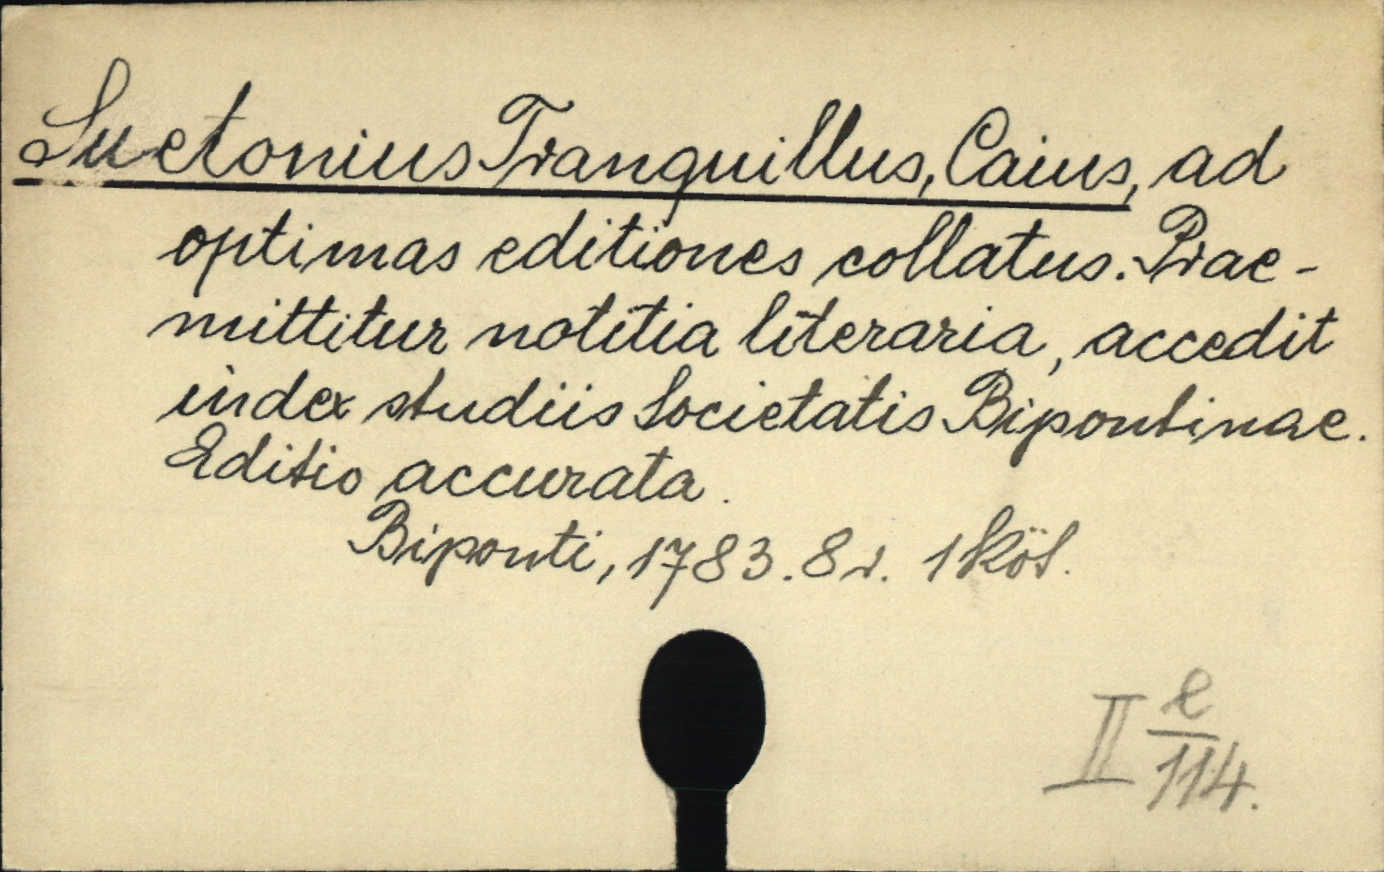 Suetonius Tranquillus, Caius, ad
optimas editiones collatus. Prae-
mittitur notitia literaria, accedit
index studiis Societatis Bipontinae.
Editio accurata.
Biponti, 1783. 8r. 1 köt.
II e/114.